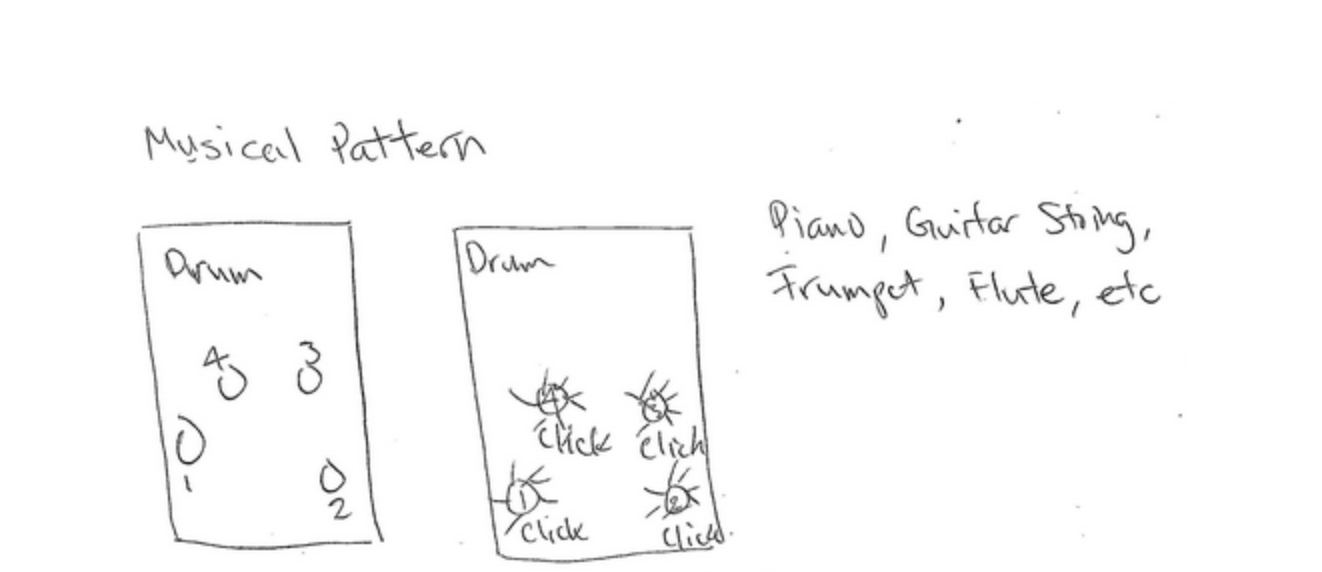 Musical Pattern
Drum
4 3
1
2
Drum
4 3
Click Click
1 2
Click Click
Piano, Guitar String,
Trumpet, Flute, etc